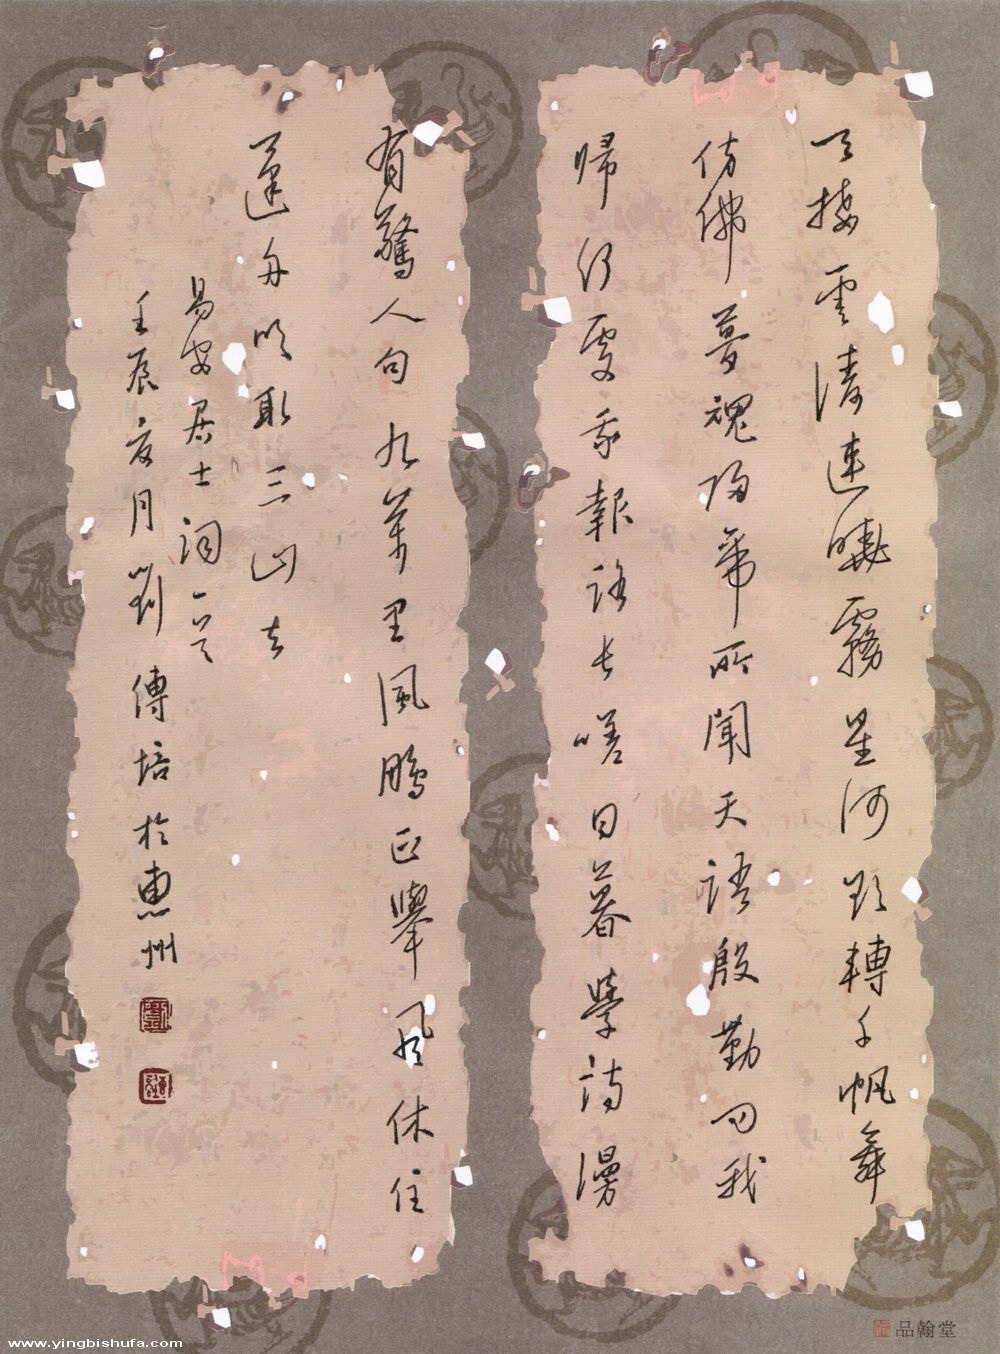 天接雲濤連曉霧星河欲轉千帆舞
仿佛夢魂歸帝所聞天語殷勤問我
歸何處我報路長嗟日暮學詩漫
有驚人句九萬里風鵬正舉風休住
蓬舟吹取三山去
易安居士詞一首
壬辰夏月劉傅培於惠州
品翰堂
www.yingbishufa.com